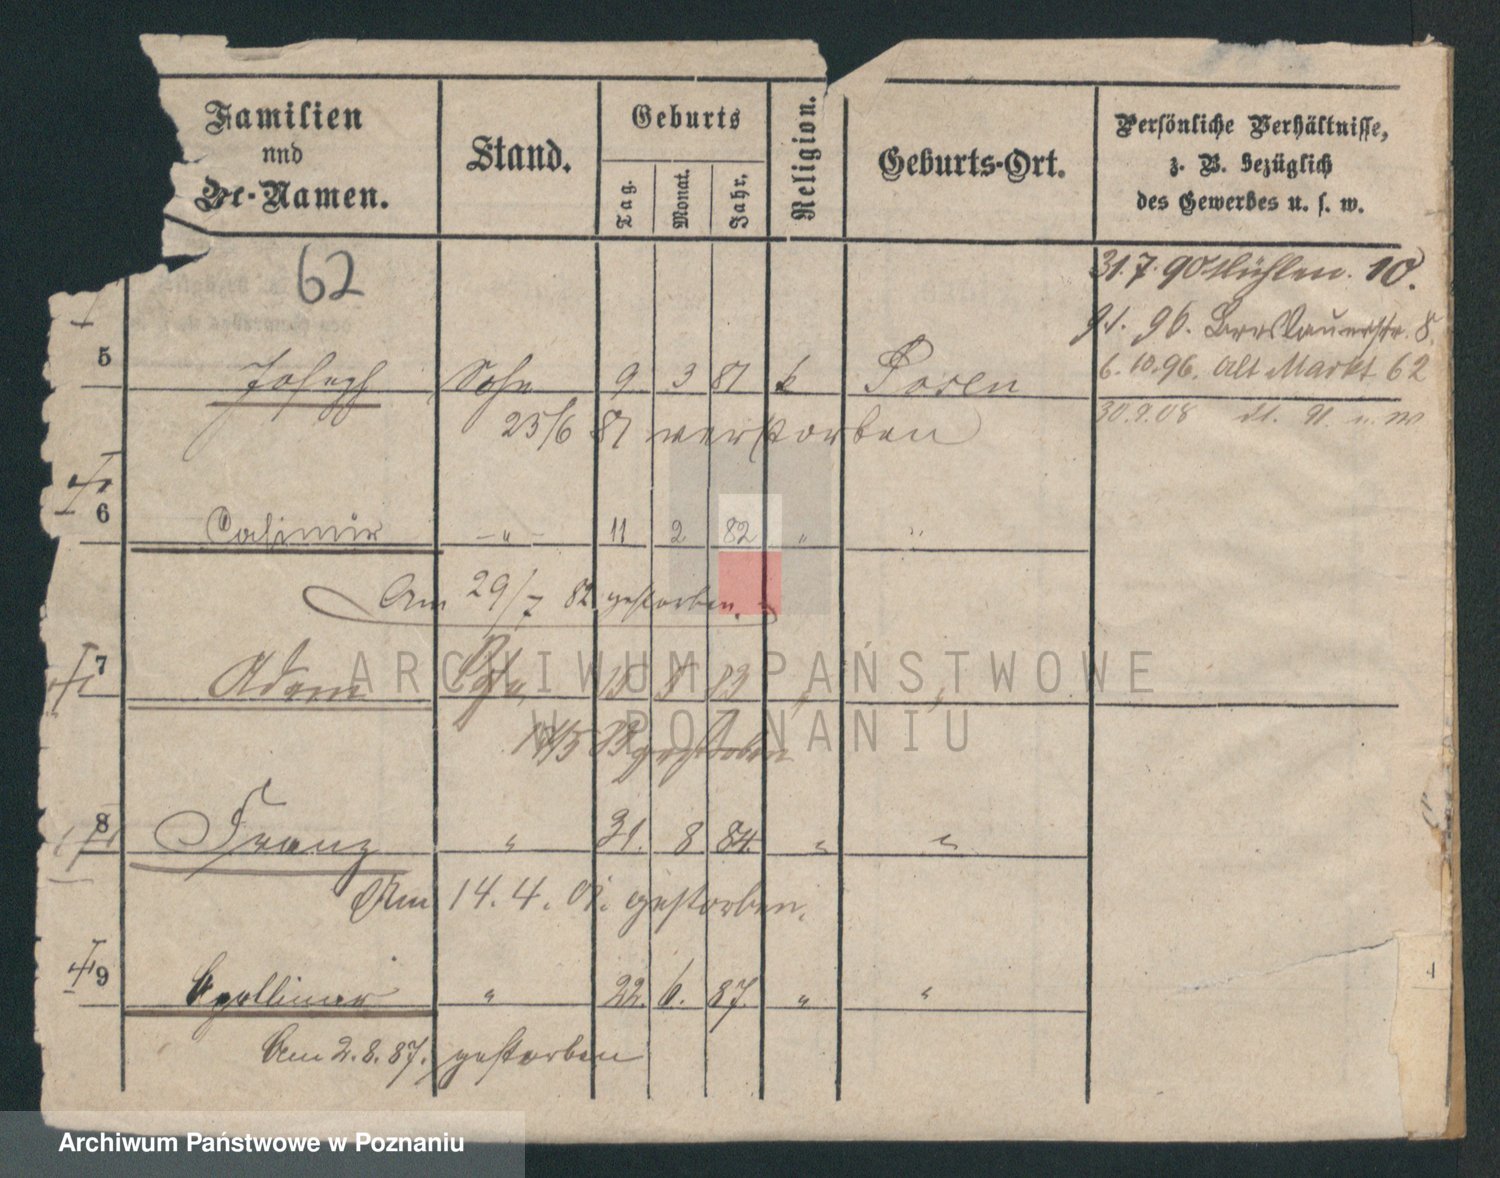 Familien
und
Namen.
Stand.
Geburts
Tag.
Monat.
Jahr.
Religion.
Geburts-Ort.
Persönliche Verhältnisse,
z. B. bezüglich
des Gewerbes u. s. w.
62
31. 7. 90 Mühlen. 10.
96. Breslauerstr. 8.
6. 10. 96. Alt Markt 62
5 Joseph Sohn 9 3 81 k Posen
30.9.08
23/6 81 verstorben
6 Casimir -"- 11 2 82 " "
Am 29/7 82 gestorben.
7 Adam 8 83 "
83 gestorben
8 Franz " 31. 8 84. " "
Am 14. 4. 01. gestorben.
9 Apollinar " 22. 6. 87. " "
Am 2. 8. 87. gestorben
4
ARCHIWUM PAŃSTWOWE
W POZNANIU
Archiwum Państwowe w Poznaniu